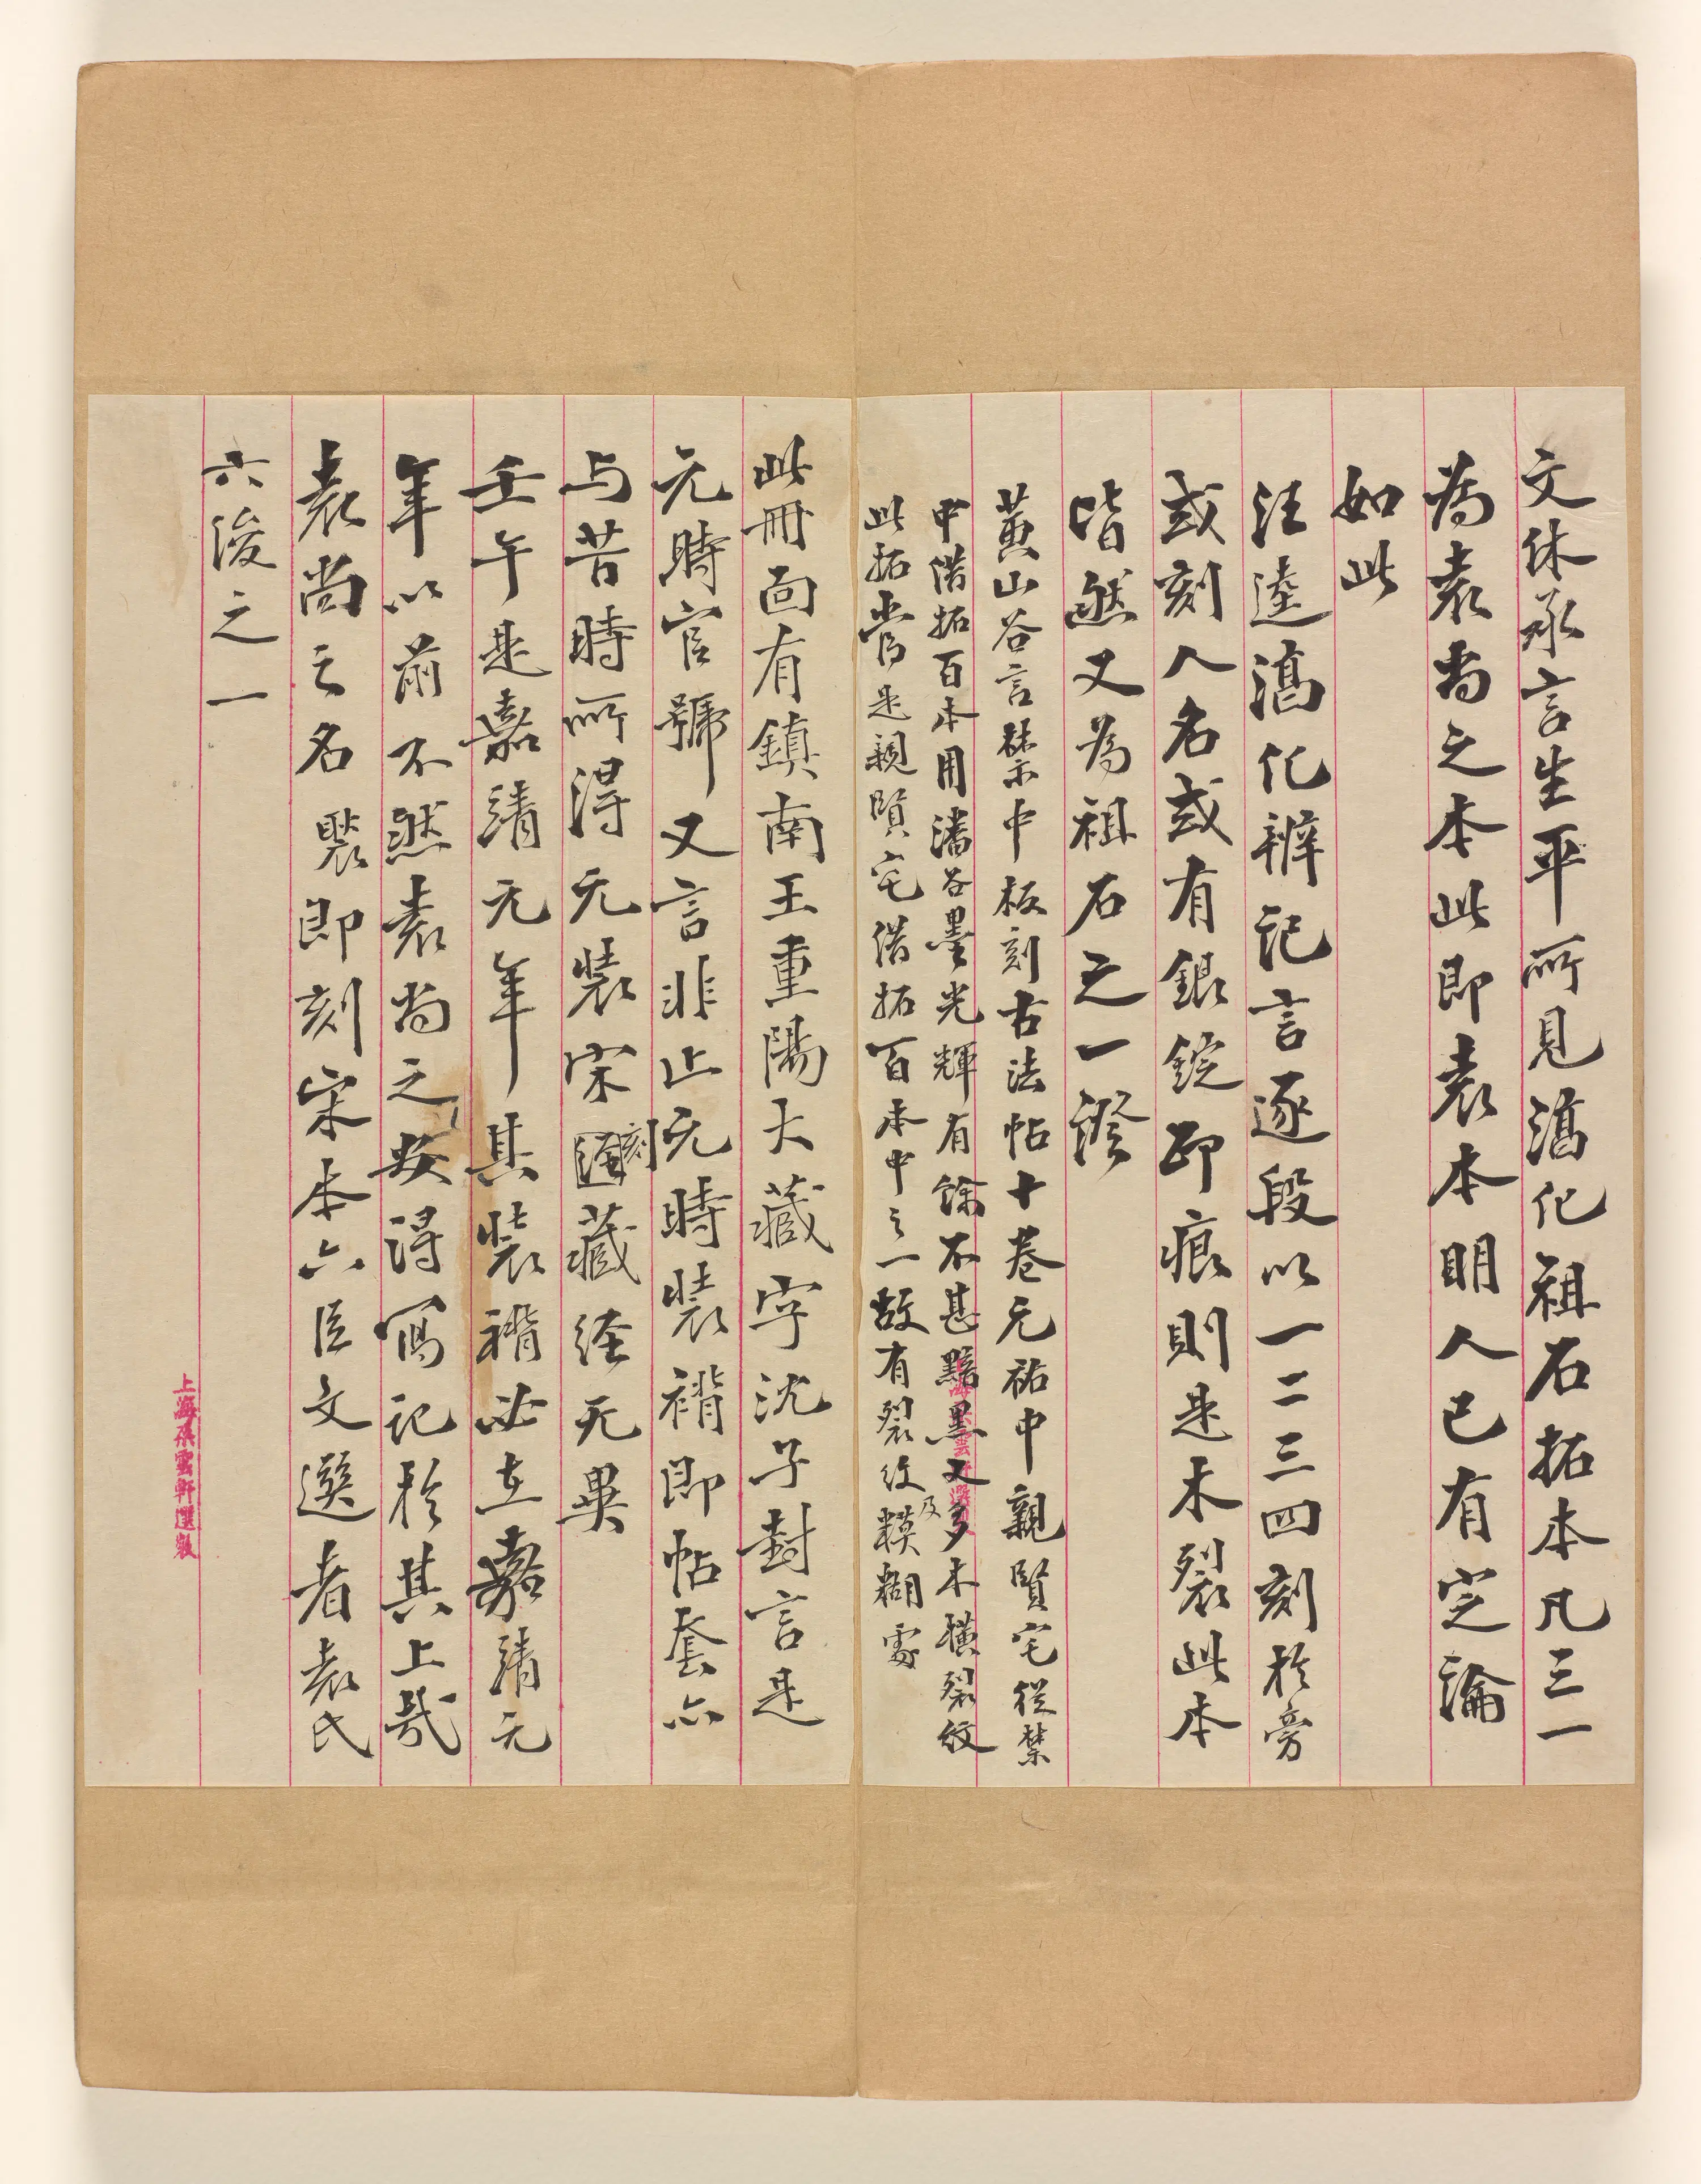 文休承言生平所見淳化祖石拓本凡三一
為袁尚之本此即袁本明人已有定論
如此
汪逵淳化辨記言逐段以一二三四刻於旁
或刻人名或有銀錠印痕則是木裂此本
皆然又為祖石之一證
黃山谷言禁中板刻古法帖十卷元祐中親賢宅從禁
中借拓百本用潘谷墨光輝有餘不甚黯黑又多木橫裂紋
此拓當是親賢宅借拓百本中之一故有裂紋及模糊處
此冊面有鎮南王重陽大藏字沈子封言是
元時官號又言非止元時裝褙即帖套亦
与昔時所得元裝宋刻藏經无異
壬午是嘉靖元年其裝褙必在嘉靖元
年以前不然袁尚之安得寫記於其上哉
袁尚之名褧即刻宋本六臣文選者袁氏
六俊之一
上海朵雲軒選製